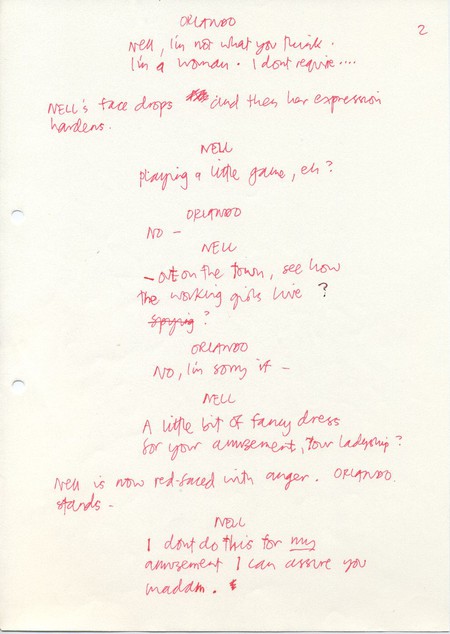 2
ORLANDO
Nell, I'm not what you think.
I'm a woman. I dont require....
NELL's face drops and then her expression
hardens.
NELL
playing a little game, eh?
ORLANDO
NO -
NELL
- out on the town, see how
the working girls live ?
spying ?
ORLANDO
No, I'm sorry if -
NELL
A little bit of fancy dress
for your amusement, your ladyship?
Nell is now red-faced with anger. ORLANDO
stands -
NELL
I dont do this for my
amusement I can assure you
madam.